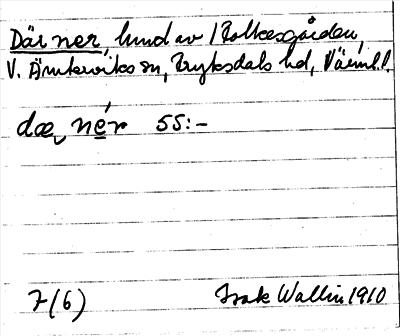 Där ner, lund av Tolkesgården,
V. Ämterviks sn, Fryksdals hd, Värml.
dæ, nér 55:-
7(6) Isak Wallin 1910